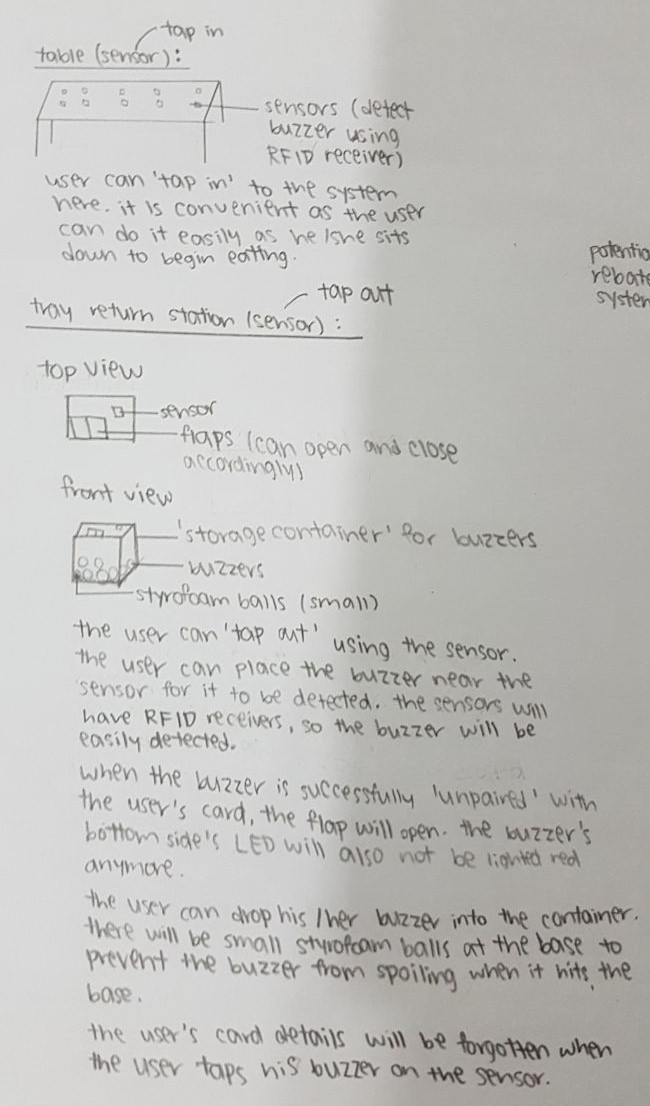 tap in
table (sensor):
sensors (detect
buzzer using
RFID receiver)
user can 'tap in' to the system
here. it is convenient as the user
can do it easily as he/she sits
down to begin eating.
potentia
rebate
system
tap out
tray return station (sensor):
top view
sensor
flaps (can open and close
accordingly)
front view
'storage container' for buzzers
buzzers
styrofoam balls (small)
the user can 'tap out' using the sensor.
the user can place the buzzer near the
sensor for it to be detected. the sensors will
have RFID receivers, so the buzzer will be
easily detected.
when the buzzer is successfully 'unpaired' with
the user's card, the flap will open. the buzzer's
bottom side's LED will also not be lighted red
anymore.
the user can drop his/her buzzer into the container.
there will be small styrofoam balls at the base to
prevent the buzzer from spoiling when it hits the
base.
the user's card details will be forgotten when
the user taps his buzzer on the sensor.